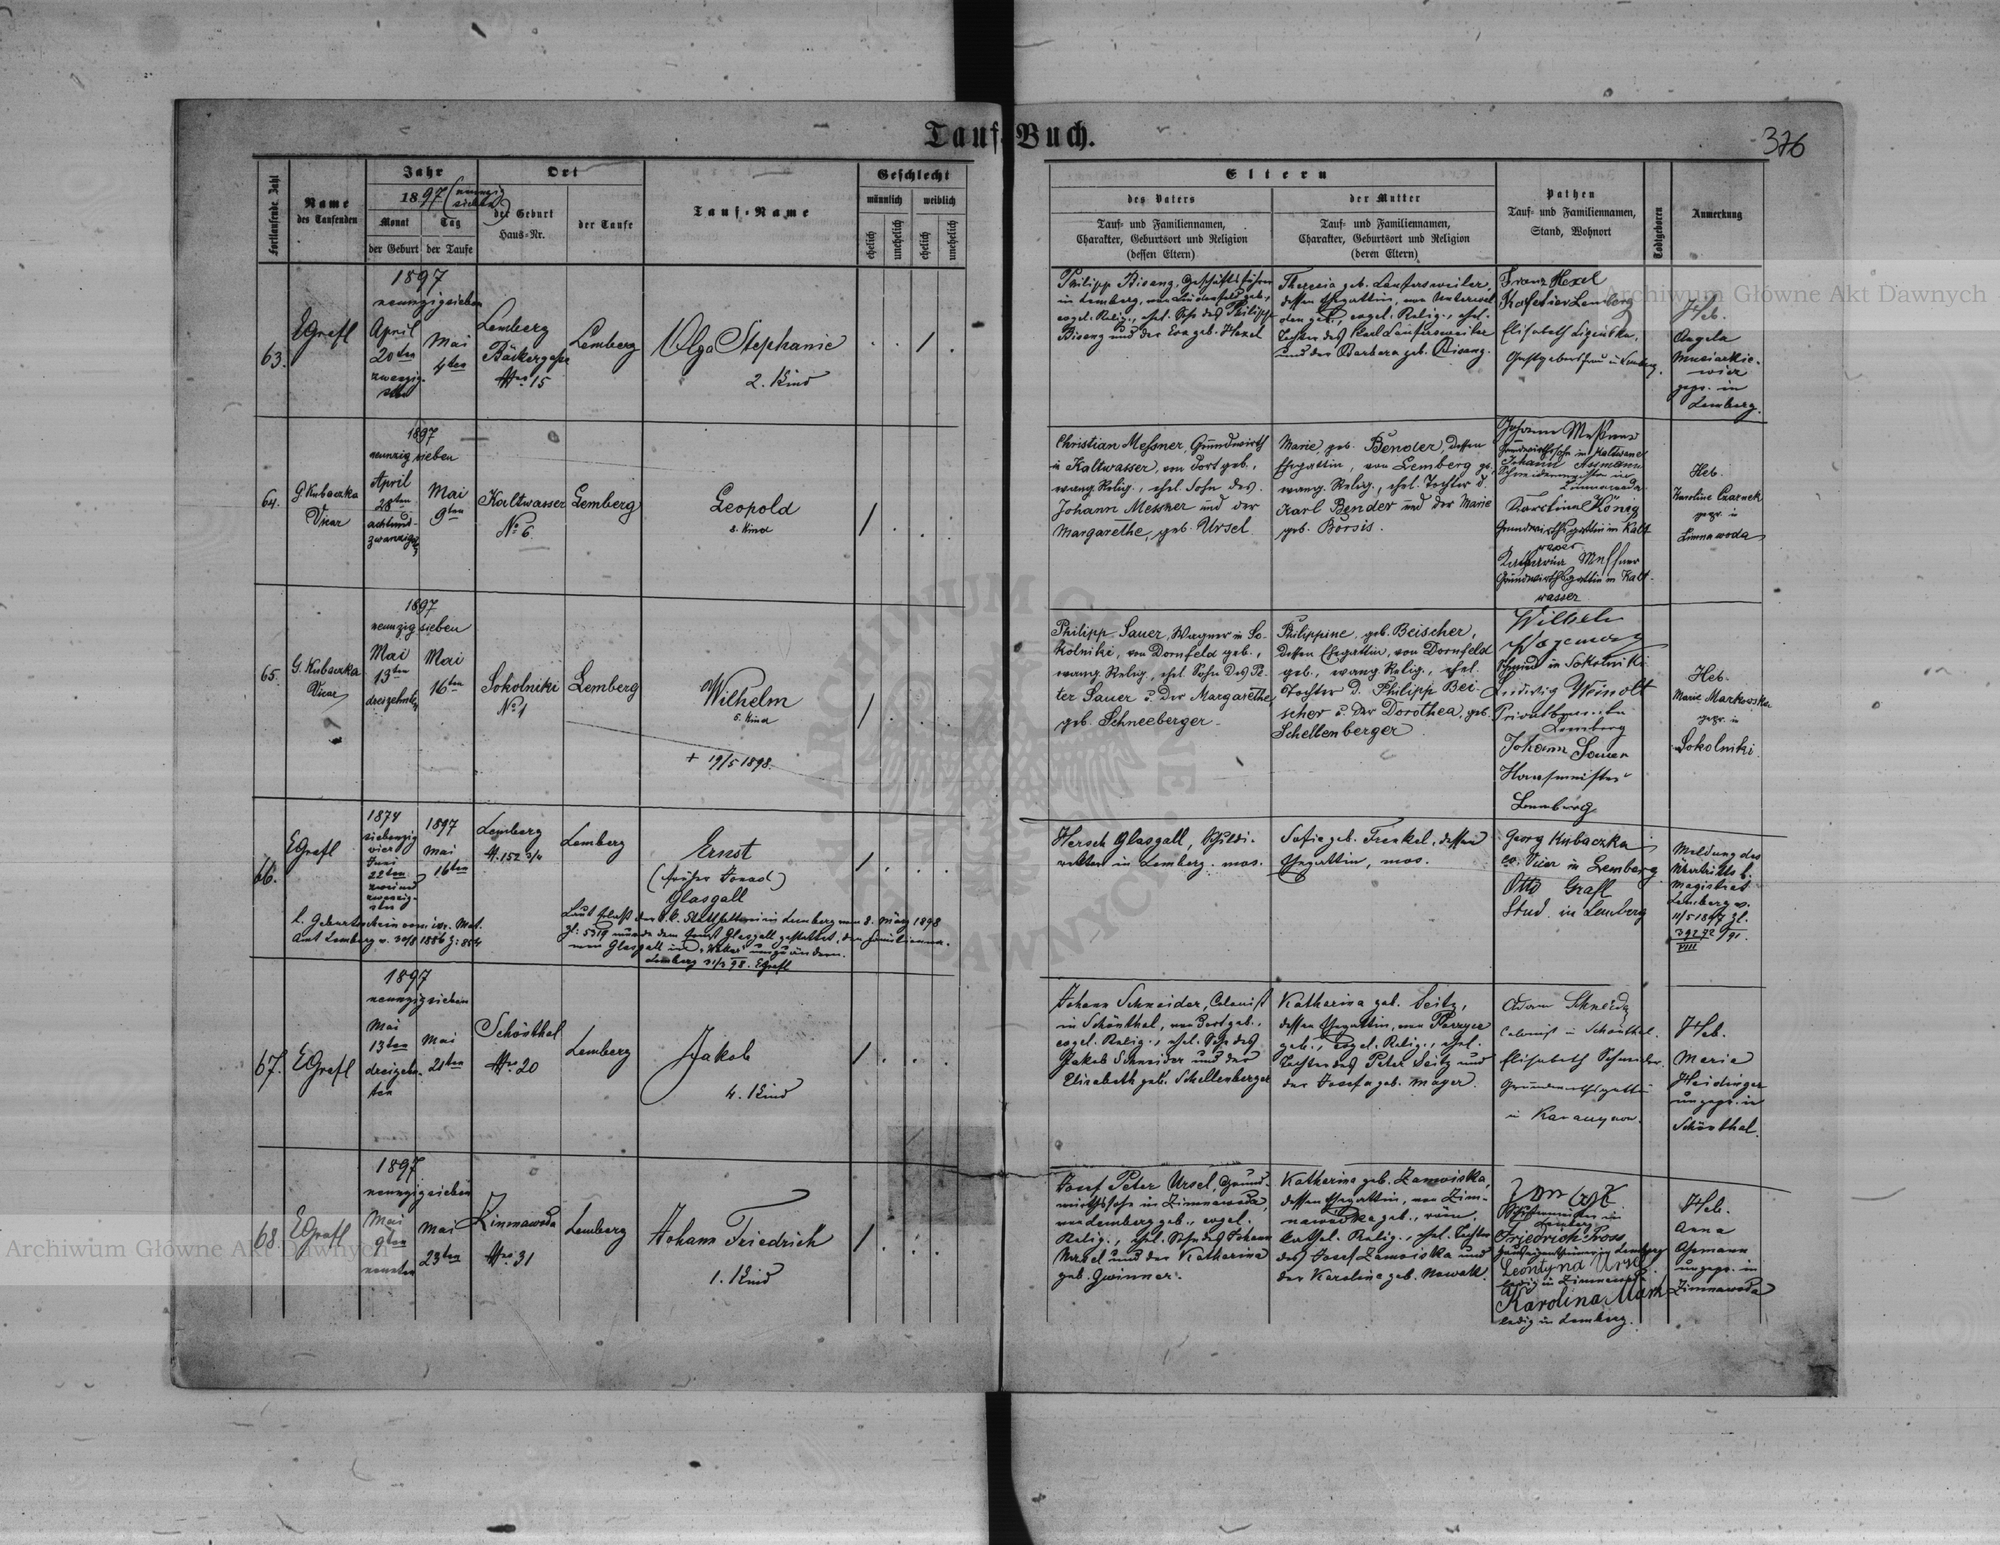 Tauf-Buch.
376
Fortlaufende Zahl
Name
des Taufenden
Jahr
1897 (neunzig
sieben)
Monat
Tag
der Geburt
der Taufe
Ort
der Geburt
Haus-Nr.
der Taufe
Tauf-Name
Geschlecht
männlich
weiblich
ehelich
unehelich
ehelich
unehelich
Eltern
des Vaters
Tauf- und Familiennamen,
Charakter, Geburtsort und Religion
(dessen Eltern)
der Mutter
Tauf- und Familiennamen,
Charakter, Geburtsort und Religion
(deren Eltern)
Pathen
Tauf- und Familiennamen,
Stand, Wohnort
Todtgeboren
Anmerkung
63.
EGrafl
1897
neunzigsieben
April
20ten
zwanzig-
sten
Mai
4ten
Lemberg
Bäckergasse
Nro. 15
Lemberg
Olga Stephanie
2. Kind
Philipp Bisanz, Geschäftsführer
in Lemberg, von geb.,
evgel. Relig., ehel. Sohn des Philipp
Bisanz und der Eva geb. Hexel
Theresia geb. Laufersweiler,
dessen Ehegattin, von Unterwal-
den geb., evgel. Relig., ehel.
Tochter des Karl Laufersweiler
und der Barbara geb. Bisanz.
Franz Hexel
Lemberg
Elisabeth
in Lemberg.
Heb.
Angela
Musiackie-
wicz
gepr. in
Lemberg.
64.
G Kubaczka
Vicar
1897
neunzigsieben
April
28ten
achtund-
zwanzigst.
Mai
9ten
Kaltwasser
No 6.
Lemberg
Leopold
8. Kind
Christian Meßner, Grundwirth
in Kaltwasser, von dort geb.,
evang. Relig., ehel. Sohn des
Johann Messner und der
Margarethe, geb. Ursel.
Marie, geb. Bender, dessen
Ehegattin, von Lemberg ge.
evang. Relig., ehel. Tochter d.
Karl Bender und der Marie
geb. Borsis.
Johann Meßner
Grundwirthssohn in Kaltwasser
Johann Assmann
Schneidermeister in
Zimnawoda
König
Grundwirthsgattin in Kalt-
wasser
Katharina Meßner
Grundwirthsgattin in Kalt-
wasser
Heb.
Karoline Czarnek
gepr. in
Zimnawoda
65.
G. Kubaczka
Vicar
1897
neunzigsieben
Mai
13ten
dreizehnten
Mai
16ten
Sokolniki
No 1
Lemberg
Wilhelm
5. Kind
+ 19/5 1898.
Philipp Sauer, Wagner in So-
kolniki, von Dornfeld geb.,
evang. Relig., ehel. Sohn des Pe-
ter Sauer u. der Margarethe,
geb. Schneeberger.
Philippine, geb. Beischer,
dessen Ehegattin, von Dornfeld
geb., evang. Relig., ehel.
Tochter d. Philipp Bei-
scher u. der Dorothea, geb.
Schellenberger
Wilhelm
Schmied in Sokolniki
Ludwig Weinolt
Lemberg
Johann Sauer
Hausmeister
Lemberg
Heb.
Marie Markowska
gepr. in
Sokolniki
66.
EGrafl
1874
siebenzig
vier
Juni
22ten
zweiund
zwanzig-
sten
1897
Mai
16ten
Lemberg
N. 152 3/4
Lemberg
Ernst
(früher Konrad)
Glasgall
l. Geburtsschein vom isr. Mat.
Amt Lemberg v. 30/8 1886 Z: 854
Laut Erlaß der k.k. Statthalterei in Lemberg vom 8. März 1898
Zl: 5319 wurde dem Ernst Glasgall gestattet, den Familienna-
men Glasgall in umzuändern.
Lemberg 31/3 98. EGrafl
Hersch Glasgall,
in Lemberg. mos.
Sofie geb. Frenkel, dessen
Ehegattin, mos.
Georg Kubaczka
ev. Vicar in Lemberg
Otto Grafl
Stud. in Lemberg
Meldung des
Übertritts b.
Magistrat
Lemberg v.
11/5 1897 Zl.
39272/97.
VIII
67.
EGrafl
1897
neunzigsieben
Mai
13ten
dreizehn-
ten
Mai
21ten
Schönthal
Nro. 20
Lemberg
Jakob
4. Kind
Johann Schneider, Colonist
in Schönthal, von dort geb.,
evgel. Relig., ehel. Sohn des
Jakob Schneider und der
Elisabeth geb. Schellenberger
Katharina geb. Seitz,
dessen Ehegattin, von
geb., evgel. Relig., ehel.
Tochter des Peter Seitz und
der Josefa geb. Mager.
Adam Schneider
Colonist in Schönthal.
Elisabeth Schneider
Grundwirthsgattin
in
Heb.
Marie
Heidinger
ungepr. in
Schönthal.
68
EGrafl
1897
neunzigsieben
Mai
9ten
neunten
Mai
23ten
Zimnawoda
Nro. 31
Lemberg
Johann Friedrich
1. Kind
Josef Peter Ursel, Grund-
wirthssohn in Zimnawoda,
von Lemberg geb., evgel.
Relig., ehel. Sohn des Johann
Ursel und der Katharina
geb. Gwinner.
Katharina geb. Zamoiska,
dessen Ehegattin, von Zim-
nawodka geb., röm.
kathol. Relig., ehel. Tochter
des Josef Zamoiska und
der Karolina geb. Nowak.
Lemberg
Friedrich Pross
Hauseigenthümer in Lemberg
Leontyna Ursel
ledig in Zimnawoda
Karolina Mank
ledig in Lemberg.
Heb.
Anna
Assmann
ungepr. in
Zimnawoda
Archiwum Główne Akt Dawnych
Archiwum Główne Akt Dawnych